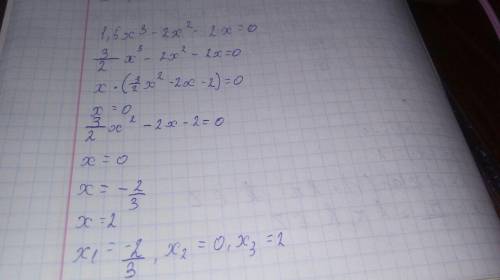 1,5x³ - 2x² - 2x = 0
3/2 x³ - 2x² - 2x = 0
x · (3/2 x² - 2x - 2) = 0
x = 0
3/2 x² - 2x - 2 = 0
x = 0
x = - 2/3
x = 2
x₁ = -2/3, x₂ = 0, x₃ = 2